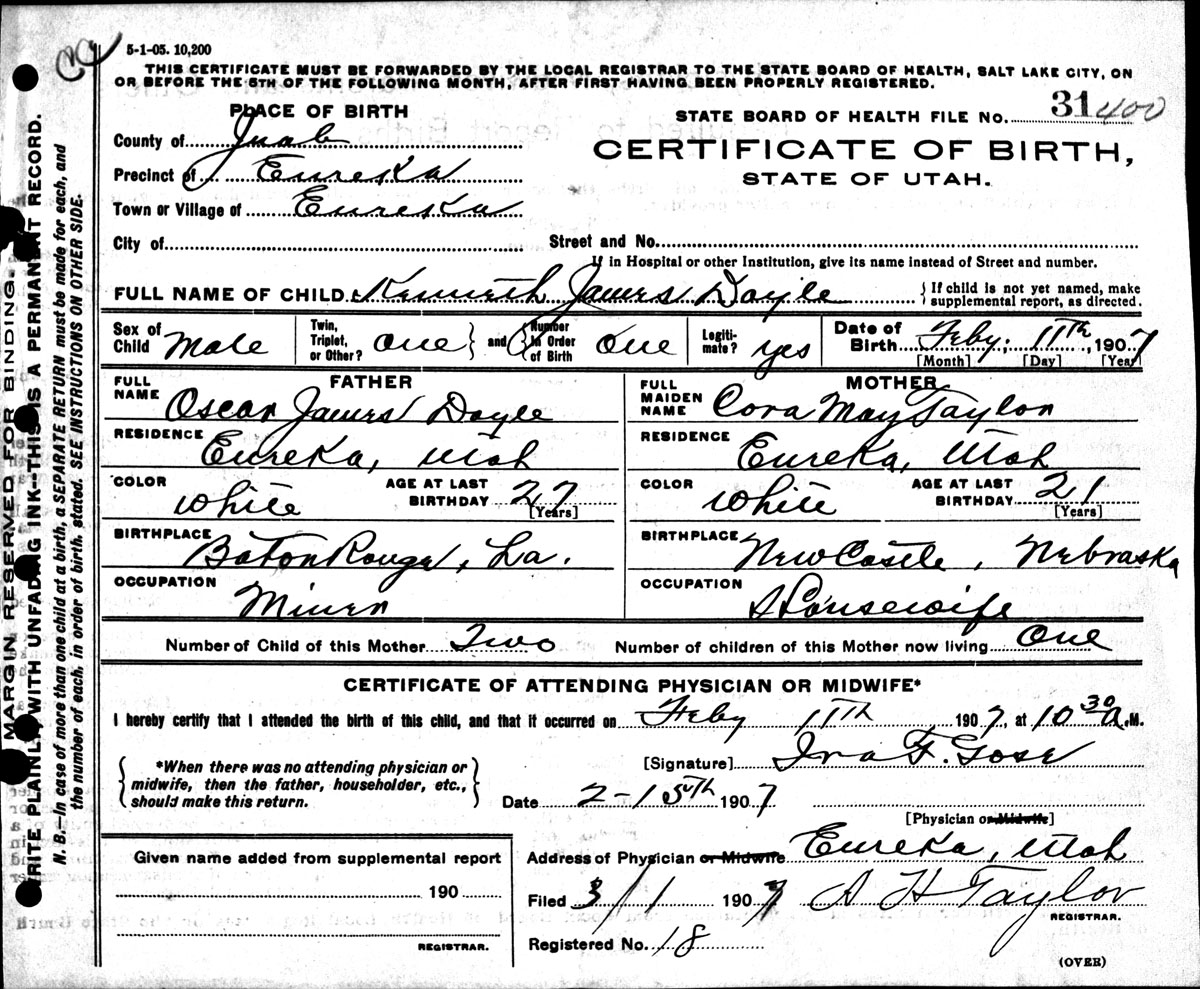 5-1-05. 10,200
THIS CERTIFICATE MUST BE FORWARDED BY THE LOCAL REGISTRAR TO THE STATE BOARD OF HEALTH, SALT LAKE CITY, ON
OR BEFORE THE 5TH OF THE FOLLOWING MONTH, AFTER FIRST HAVING BEEN PROPERLY REGISTERED.
PLACE OF BIRTH
STATE BOARD OF HEALTH FILE No. 31 400
County of Juab
CERTIFICATE OF BIRTH,
Precinct of Eureka
STATE OF UTAH.
Town or Village of Eureka
City of
Street and No.
If in Hospital or other Institution, give its name instead of Street and number.
FULL NAME OF CHILD Kenneth James Doyle
{ If child is not yet named, make
supplemental report, as directed.
Sex of Child Male
Twin, Triplet, or Other? One } and { Number in Order of Birth One
Legitimate? yes
Date of Birth Feby. 11th, 1907
[Month] [Day] [Year]
FATHER
FULL NAME Oscar James Doyle
RESIDENCE Eureka, Utah
COLOR White AGE AT LAST BIRTHDAY 27 [Years]
BIRTHPLACE Baton Rouge, La.
OCCUPATION Miner
MOTHER
FULL MAIDEN NAME Cora May Taylor
RESIDENCE Eureka, Utah
COLOR White AGE AT LAST BIRTHDAY 21 [Years]
BIRTHPLACE New Castle, Nebraska
OCCUPATION Housewife
Number of Child of this Mother Two Number of children of this Mother now living One
CERTIFICATE OF ATTENDING PHYSICIAN OR MIDWIFE*
I hereby certify that I attended the birth of this child, and that it occurred on Feby 11th 1907, at 10 30 a.M.
{ *When there was no attending physician or
midwife, then the father, householder, etc.,
should make this return. }
[Signature] Ira F. Gose
Date 2-15th 1907
[Physician or Midwife]
Given name added from supplemental report
190
REGISTRAR.
Address of Physician or Midwife Eureka, Utah
Filed 3/1 1907 A H Taylor
REGISTRAR.
Registered No. 18
(OVER)
MARGIN RESERVED FOR BINDING.
WRITE PLAINLY, WITH UNFADING INK--THIS IS A PERMANENT RECORD.
N. B.—In case of more than one child at a birth, a SEPARATE RETURN must be made for each, and
the number of each, in order of birth, stated. SEE INSTRUCTIONS ON OTHER SIDE.